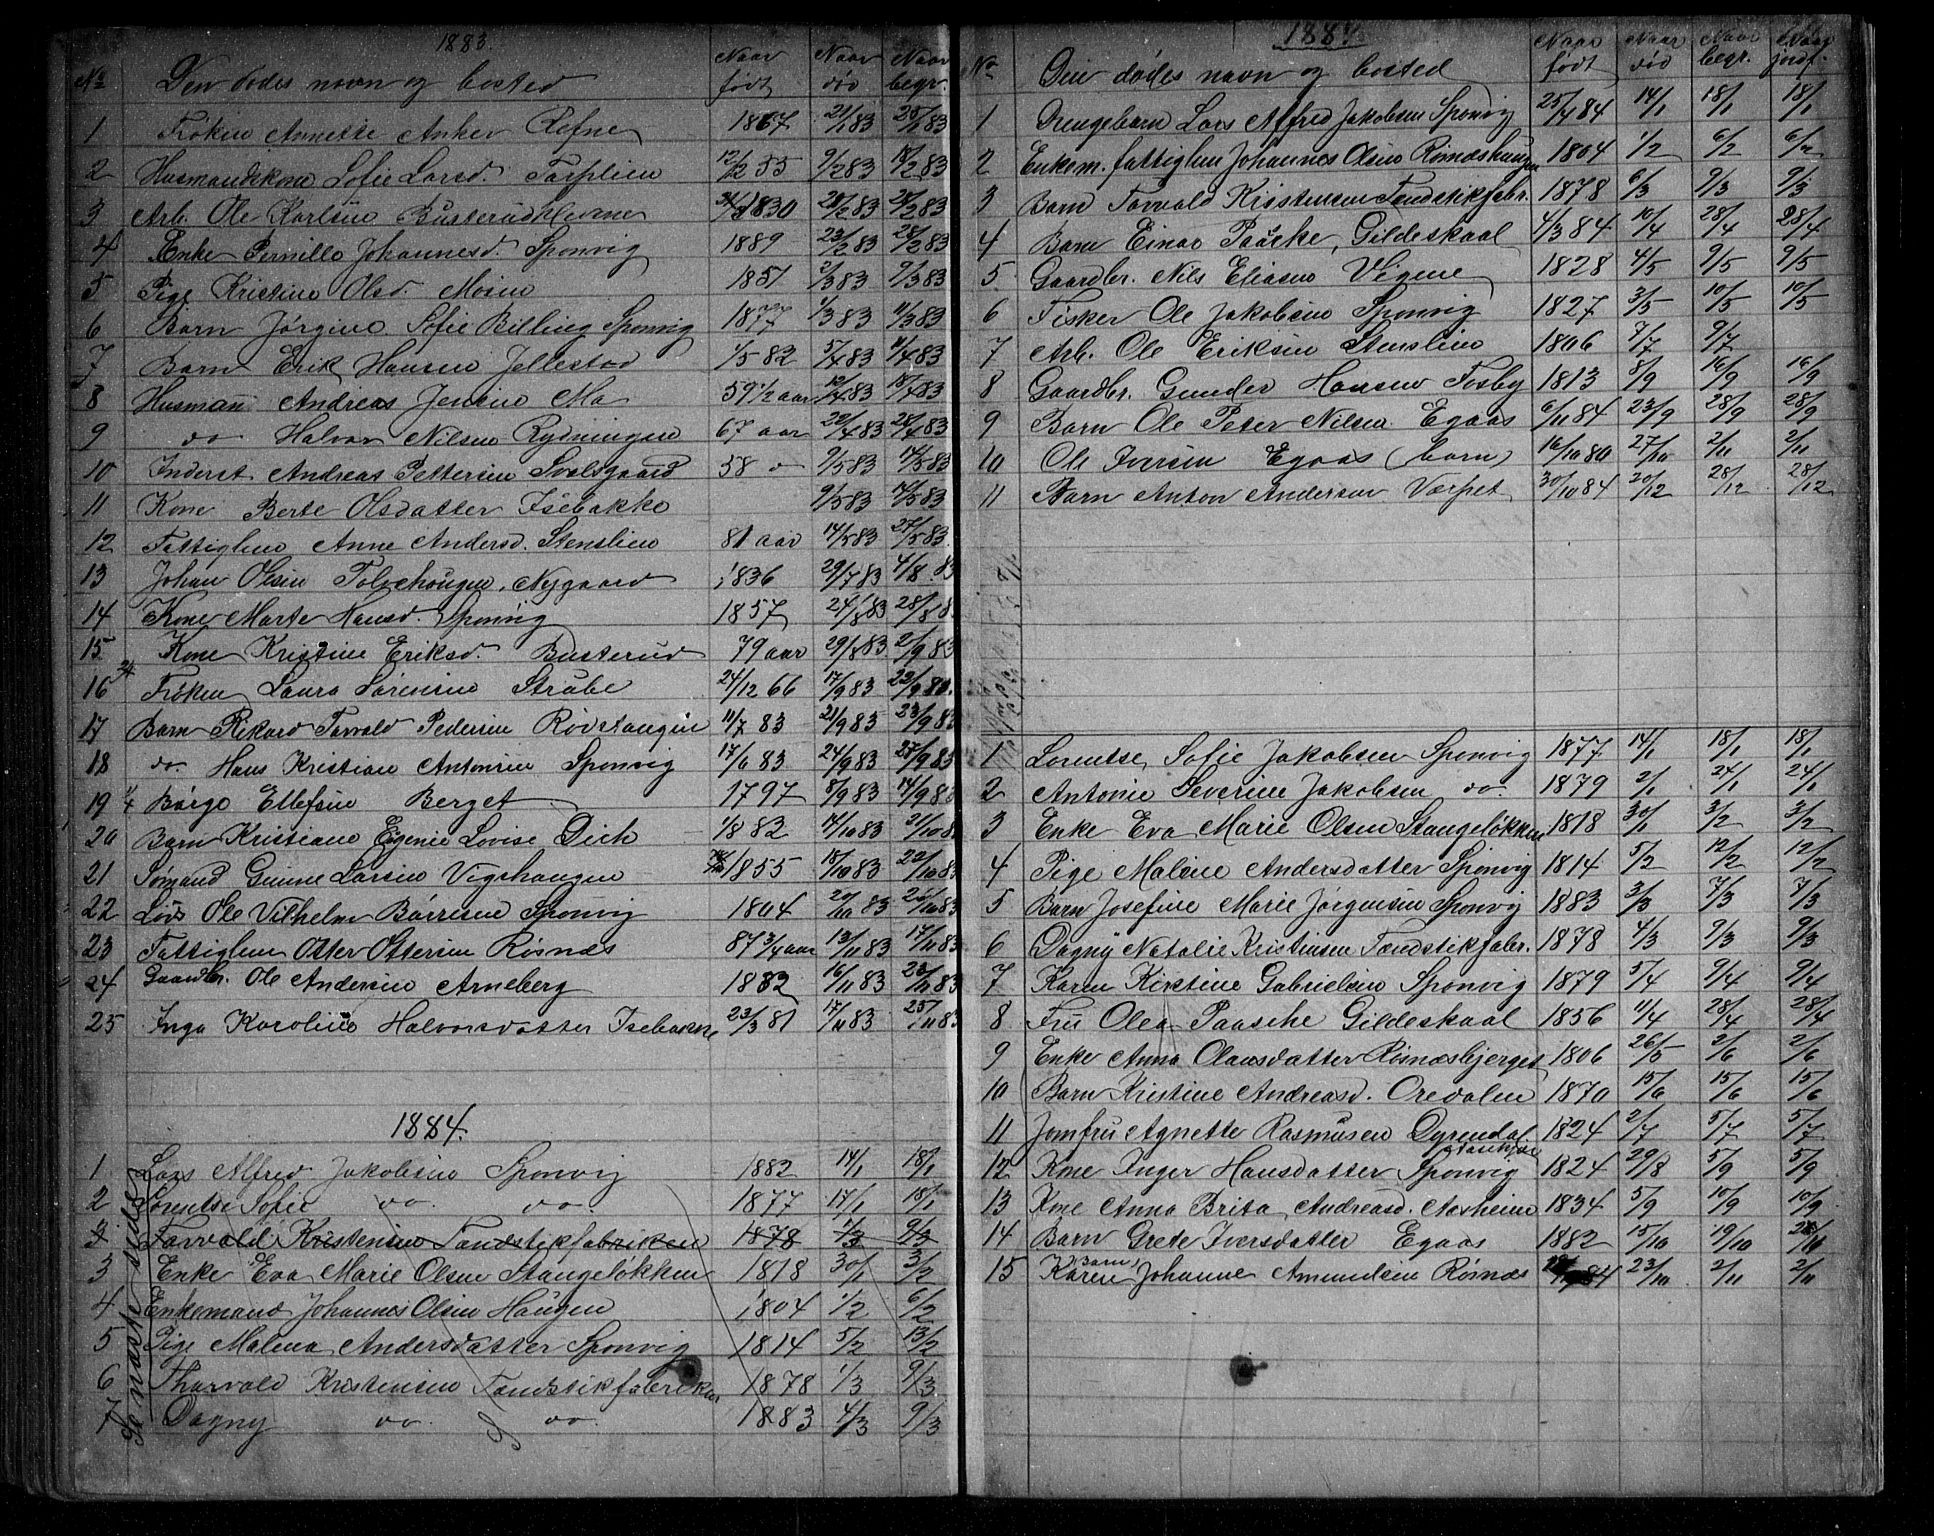 1883.
No Den dødes navn og bosted Naar født Naar død Naar begr.
1 Frøken Annette Anker Refne 1867 21/1 83 25/1 83
2 Husmandskone Sofie Larsd. Torplien 12/2 55 9/2 83 18/2 83
3 Arb. Ole Karlsen Busterudkleven 1830 20/2 83 28/2 83
4 Enke Pernille Johannesd. Sponvig 1889 23/2 83 28/2 83
5 Pige Kristine Olsd. Moen 1851 2/3 83 9/3 83
6 Barn Jørgine Sofie Billing Sponvig 1877 1/3 83 11/3 83
7 Barn Erik Hansen Jellestad 1/5 82 5/4 83 11/4 83
8 Husman Andreas Jensen Mo 59 1/2 aar 12/4 83 18/4 83
9 do Halvor Nilsen Rydningen 67 aar 22/4 83 28/4 83
10 Inderst Andreas Pettersen Svalsgaard 58 o 9/5 83 14/5 83
11 Kone Berte Olsdatter Isebakke 9/5 83 14/5 83
12 Fattiglem Anne Andersd. Stenslien 81 aar 14/5 83 27/5 83
13 Johan Olsen Tolvehougen, Nygaard 1836 29/7 83 4/8 83
14 Kone Marte Hansd. Sponvig 1857 24/8 83 28/8 8
15 Kone Kristine Eriksd. Busterud 79 aar 29/8 83 2/9 83
16 Frøken Laura Sørensen Strube 24/12 66 17/9 83 22/9 83
17 Barn Rikard Torvald Pedersen Rødstangen 11/7 83 21/9 83 23/9 83
18 do. Hans Kristian Antonsen Sponvig 17/6 83 24/9 83 27/9 83
19 Børge Ellefsen Berget 1797 8/9 83 14/9 83
20 Barn Kristiane Eugenie Lovise Dich 1/8 82 17/10 83 21/10 8
21 Sømand Gunne Larsen Vigshaugen 1855 18/10 83 22/10 83
22 Lods Ole Vilhelm Børresen Sponvig 1804 20/10 83 26/10 83
23 Fattiglem Otter Ottersen Røsnæs 87 3/4 aar 13/11 83 17/11 83
24 Gaardbr. Ole Andersen Arneberg 1882 16/11 83 23/11 83
25 Inga Karoline Halvorsdatter Isebakke 23/3 81 17/11 83 25/11 83
1884.
1 Lars Alfred Jakobsen Sponvig 1882 14/1 18/1
2 Lorentse Sofie do do. 1877 17/1 18/1
3 Torvald Kristensen Tændstikfabriken 1878 1/3 9/3
3 Enke Eva Marie Olsen Stangeløkken 1818 30/1 3/2
4 Enkemand Johannes Olsen Haugen 1804 1/2 6/2
5 Pige Malena Andersdatter Sponvig 1814 5/2 13/2
6 Thorvald Kristensen Tændstikfabriken 1878 1/3 9/3
7 Dagny do. do. 1883 4/3 9/3
1884
No Den dødes navn og bosted Naar født Naar død Naar begr. Naar jordf.
1 Drengebarn Lars Alfred Jakobsen Sponvig 25/4 84 14/1 18/1 18/1
2 Enkem. fattiglem Johannes Olsen Røsnæshaugen 1804 1/2 6/2 6/2
3 Barn Torvald Kristensen Tændstikfabr. 1878 6/3 9/3 9/3
4 Barn Einar Paaske, Gildeskaal 4/3 84 10/4 28/4 28/4
5 Gaardbr. Nils Eliasen Vigene 1828 4/5 9/5 9/5
6 Fisker Ole Jakobsen Sponvig 1827 3/5 10/5 10/5
7 Arb. Ole Eriksen Stenslien 1806 7/7 9/7
8 Gaardbr. Gunder Hansen Tosby 1813 8/9 16/9 16/9
9 Barn Ole Peter Nilsen Egaas 6/11 84 23/9 28/9 28/9
10 Ole Iversen Egaas (barn) 16/10 80 27/10 2/11 2/11
11 Barn Anton Andersen Værpet 30/10 84 20/12 28/12 28/12
1 Lorentse Sofie Jakobsen Sponvig 1877 14/1 18/1 18/1
2 Antonie Severine Jakobsen do. 1879 2/1 24/1 24/1
3 Enke Eva Marie Olsen Stangeløkken 1818 30/1 3/2 3/2
4 Pige Malene Andersdatter Sponvig 1814 5/2 12/2 12/2
5 Barn Josefine Marie Jørgensen Sponvig 1883 3/3 7/3 7/3
6 Dagny Natalie Kristensen Tændstikfabr. 1878 4/3 9/3 9/3
7 Karen Kirstine Gabrielsen Sponvig 1879 5/4 9/4 9/4
8 Fru Olea Paasche Gildeskaal 1856 11/4 28/4 28/4
9 Enke Anna Olausdatter Røsnæsbjerget 1806 26/5 2/6 2/6
10 Barn Kristine Andreasd. Oredalen 1870 15/6 15/6 15/6
11 Jomfru Agnette Rasmusen Dyrendal 1824 2/7 5/7 5/7
12 Kone Inger Hansdatter Sponvig 1824 29/8 5/9 5/9
13 Kone Anna Brita Andreasd. Aasheim 1834 5/9 10/9 10/9
14 Barn Grete Iversdatter Egaas 1882 15/10 19/10
15 Barn Karen Johanne Amundsen Røsnæs 84 23/10 2/11 2/11